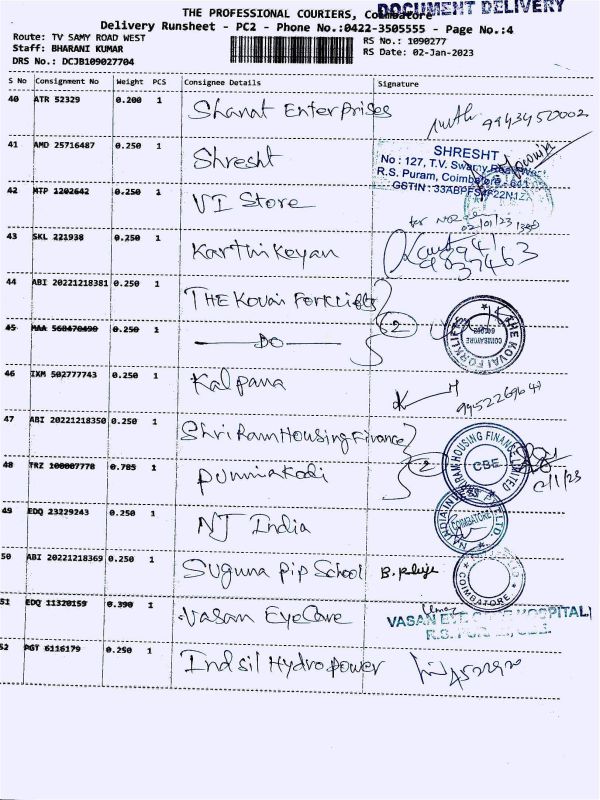 THE PROFESSIONAL COURIERS, Coimbatore
DOCUMENT DELIVERY
Delivery Runsheet - PC2 - Phone No.:0422-3505555 - Page No.:4
Route: TV SAMY ROAD WEST
RS No.: 1090277
Staff: BHARANI KUMAR
RS Date: 02-Jan-2023
DRS No.: DCJB109027704
S No Consignment No Weight PCS Consignee Details Signature
40 ATR 52329 0.200 1 Sharat Enterprises
9943450002
41 AMD 25716487 0.250 1 Shresht
SHRESHT
No : 127, T.V. Swamy Road
R.S. Puram, Coimbatore
GSTIN : 33ABPFS4F22N1Z
42 MTP 1202642 0.250 1 VI Store
for
02/01/23
43 SKL 221938 0.250 1 Karthikeyan
44 ABI 20221218381 0.250 1 THE Kovai Forklifts
2
THE KOVAI FORKLIFTS
COIMBATORE
45 MAA 560470490 0.250 1 — DO —
46 IXM 502777743 0.250 1 Kalpana
47 ABI 20221218350 0.250 1 Shri Ram Housing Finance
2
HOUSING FINANCE LIMITED
CBE
2/1/23
48 TRZ 100007778 0.785 1 Punniakodi
49 EDQ 23229243 0.250 1 NJ India
COIMBATORE
50 ABI 20221218369 0.250 1 Suguna Pip School
COIMBATORE
51 EDQ 11320159 0.390 1 Vasan Eye Care
VASAN EYE CARE HOSPITAL
R.S. PURAM, CBE.
52 PGT 6116179 0.250 1 Indsil Hydro power